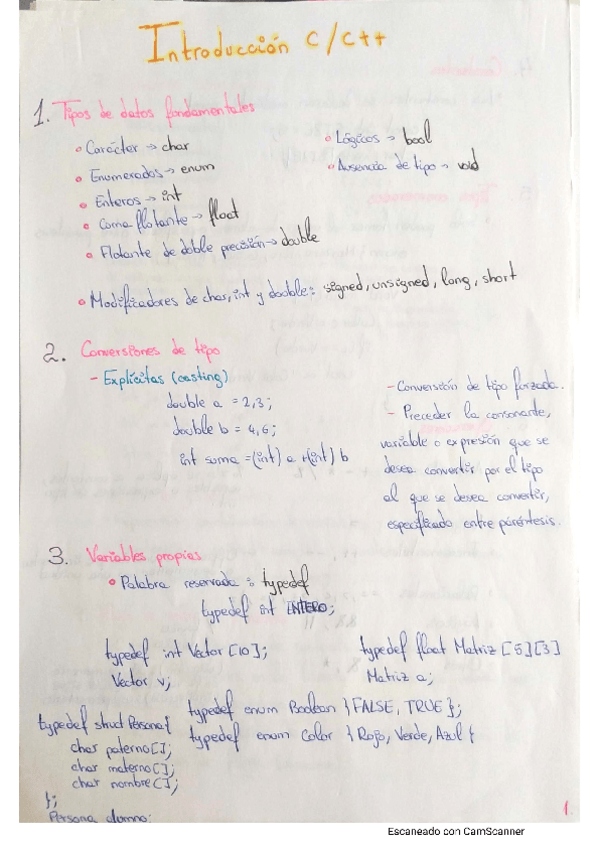 Introducción C/C++
1. Tipos de datos fundamentales
• Carácter → char
• Enumerados → enum
• Enteros → int
• Coma flotante → float
• Flotante de doble precisión → double
• Lógicos → bool
• Ausencia de tipo → void
• Modificadores de char, int y double: signed, unsigned, long, short
2. Conversiones de tipo
- Explícitas (casting)
double a = 2,3;
double b = 4,6;
int suma = (int) a + (int) b
- Conversión de tipo forzada.
- Preceder la consonante,
variable o expresión que se
desea convertir por el tipo
al que se desea convertir,
especificado entre paréntesis.
3. Variables propias
• Palabra reservada: typedef
typedef int ENTERO;
typedef int Vector [10];
Vector v;
typedef float Matriz [5][3]
Matriz a;
typedef enum Boolean { FALSE, TRUE };
typedef enum Color { Rojo, Verde, Azul {
typedef struct Persona {
char paterno[];
char materno[];
char nombre[];
};
Persona alumno;
1.
Escaneado con CamScanner